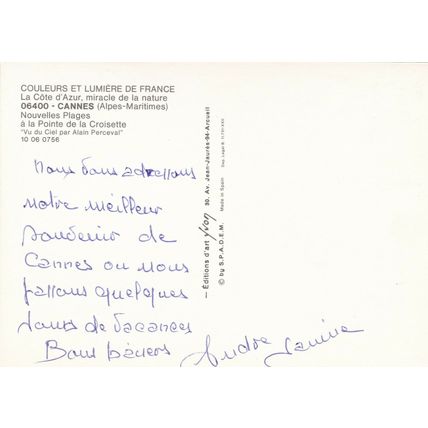 COULEURS ET LUMIÈRE DE FRANCE
La Côte d'Azur, miracle de la nature
06400 - CANNES (Alpes-Maritimes)
Nouvelles Plages
à la Pointe de la Croisette
"Vu du Ciel par Alain Perceval"
10 06 0756
Nous vous adressons
notre meilleur
souvenir de
Cannes ou nous
passons quelques
jours de vacances
Bons baisers
André
— Éditions d'art Yvon 90, Av. Jean-Jaurès-94-Arcueil
© by S.P.A.D.E.M. Made in Spain